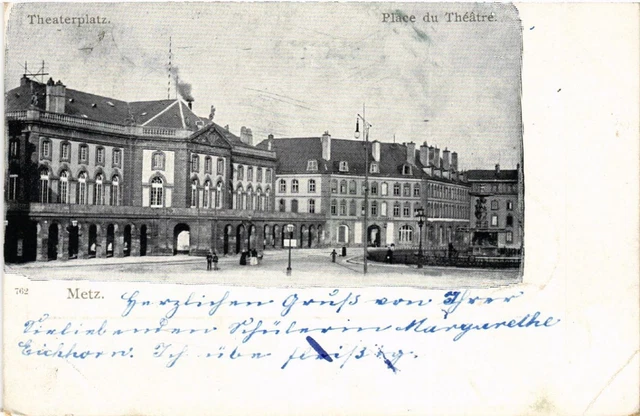 Theaterplatz. Place du Théâtre.
762 Metz. Herzlichen Gruß von Ihrer
Sie liebenden Schülerin Margarethe
Eichhorn. Ich übe fleißig.